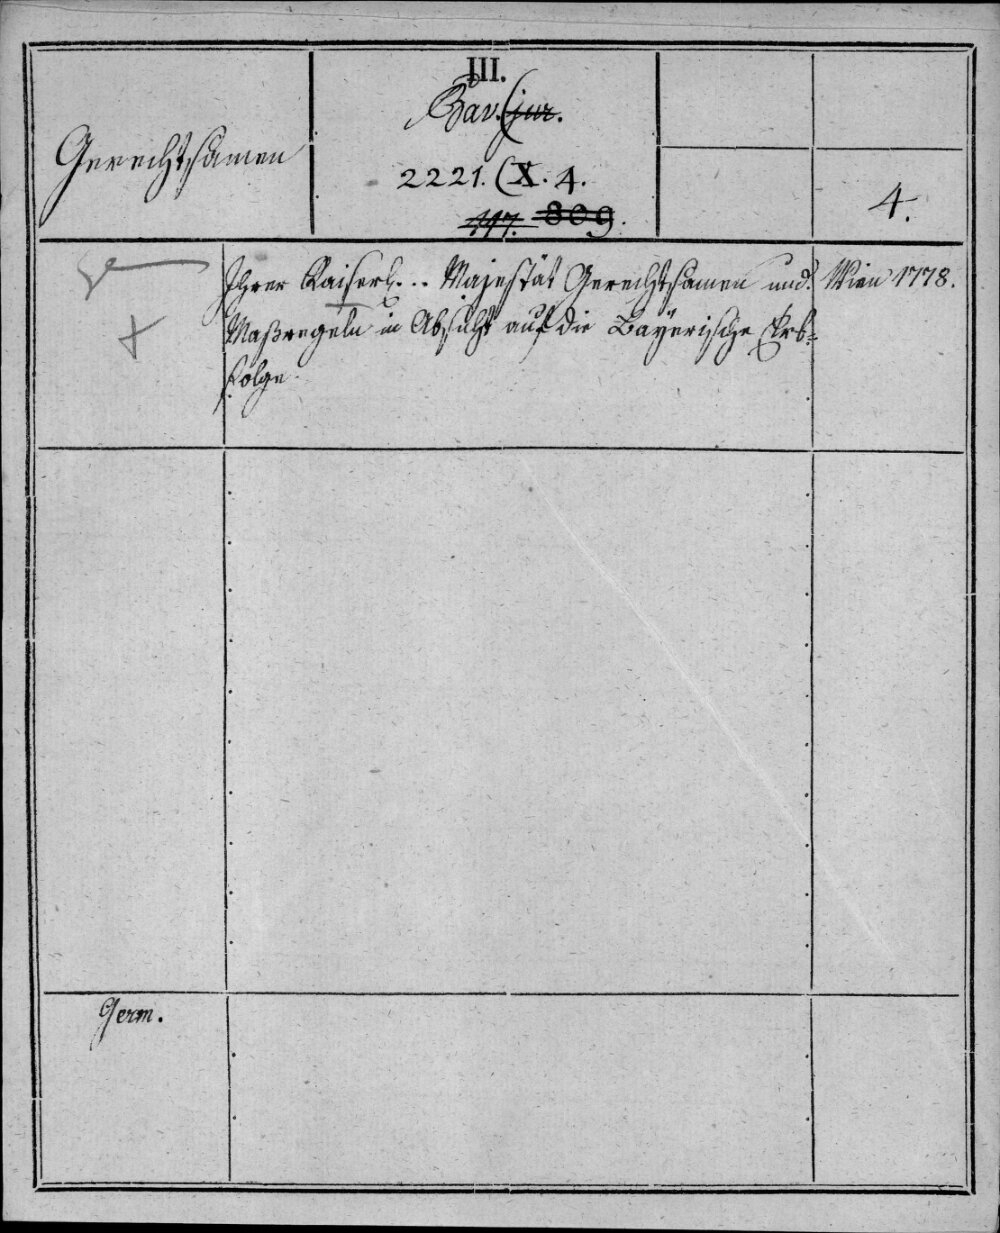 III.
Bav. (jur.
Gerechtsamen
2221. (X. 4.
4.
117. 809.
Ihrer Kaiserl. . . Majestät Gerechtsamen und
Wien 1778.
Maßregeln in Absicht auf die Bayerische Erb-
folge
Germ.